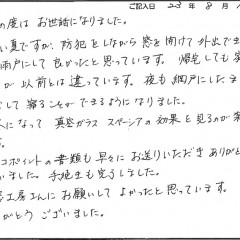 ご記入日 23年8月
の度は お世話になりました。
い夏ですが、防犯をしながら窓を開けて外出でき
雨戸にして良かったと思っています。帰宅しても室
が以前とは違っています。夜も網戸にしたまま
して寝ることができるようになりました。
になって 真空ガラス スペーシアの効果を見るのが楽
す。
コポイントの書類も早々にお送りいただきありがと
いました。手続きも完了しました。
工房さんにお願いして よかったと思っています。
がとう ございました。